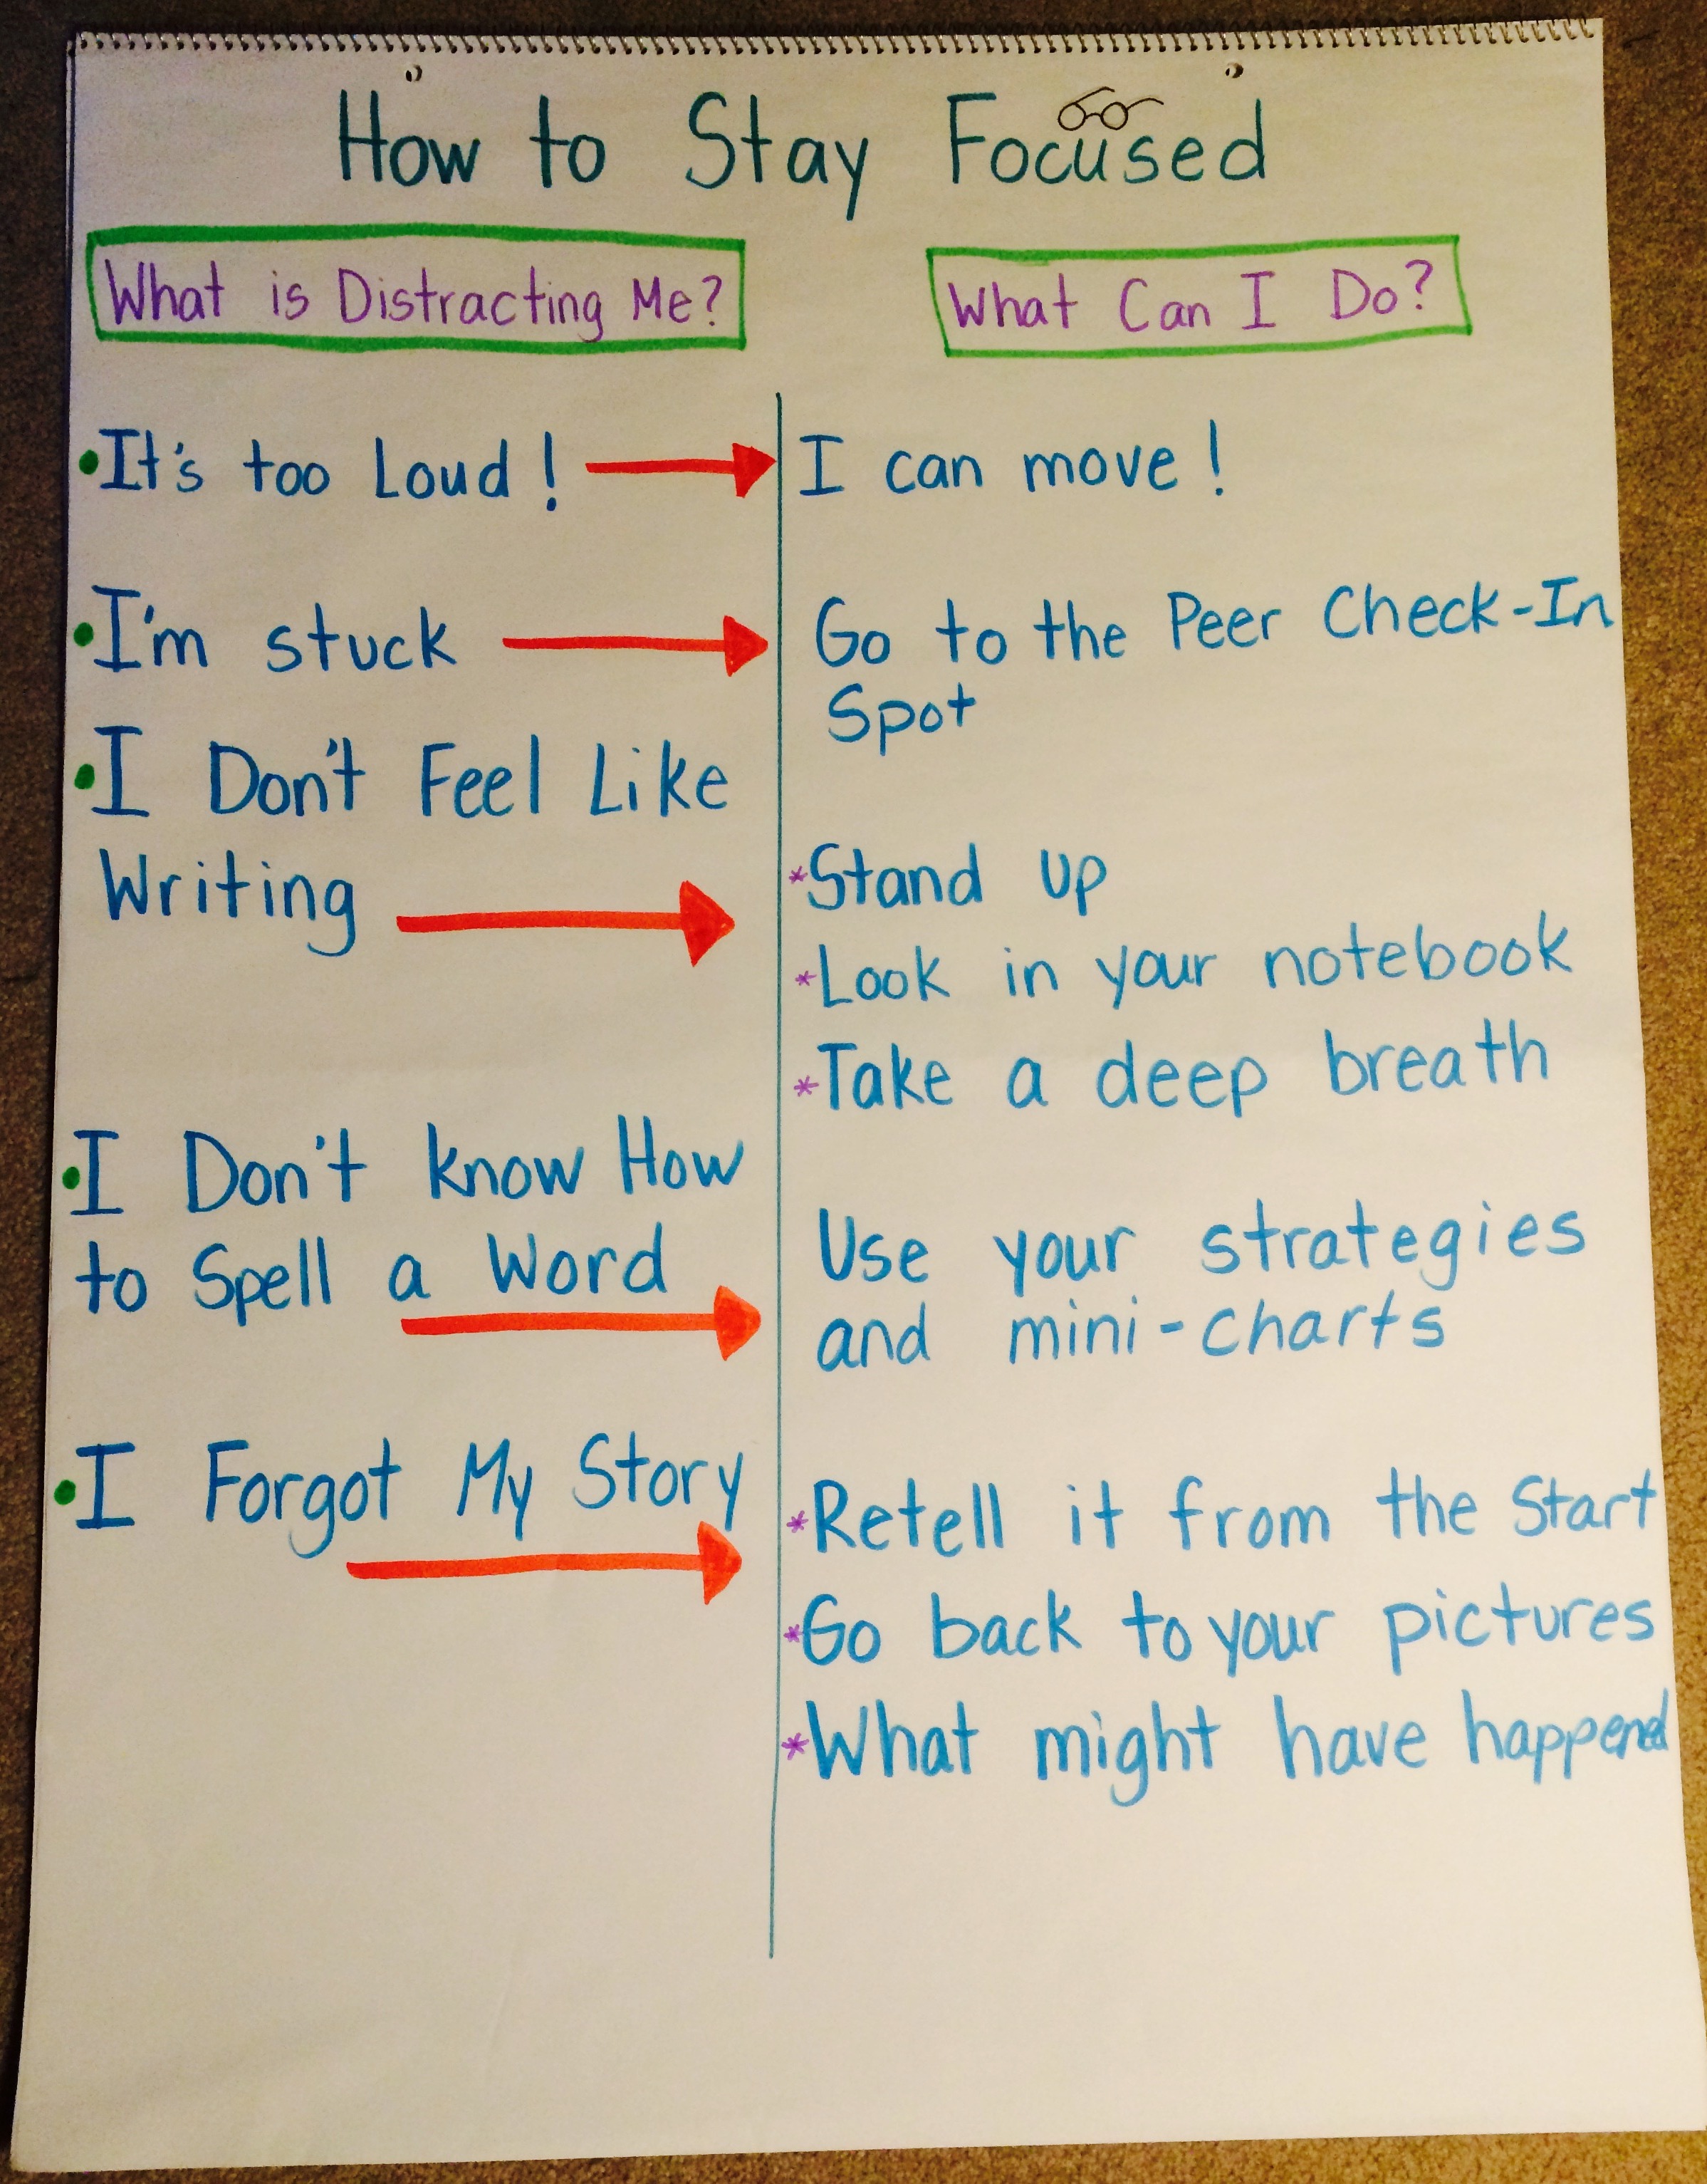 How to Stay Focused
What is Distracting Me?
What Can I Do?
•It's too Loud!
I can move!
•I'm stuck
Go to the Peer Check-In
Spot
•I Don't Feel Like
Writing
*Stand up
*Look in your notebook
*Take a deep breath
•I Don't know How
to Spell a Word
Use your strategies
and mini-charts
•I Forgot My Story
*Retell it from the Start
*Go back to your pictures
*What might have happened